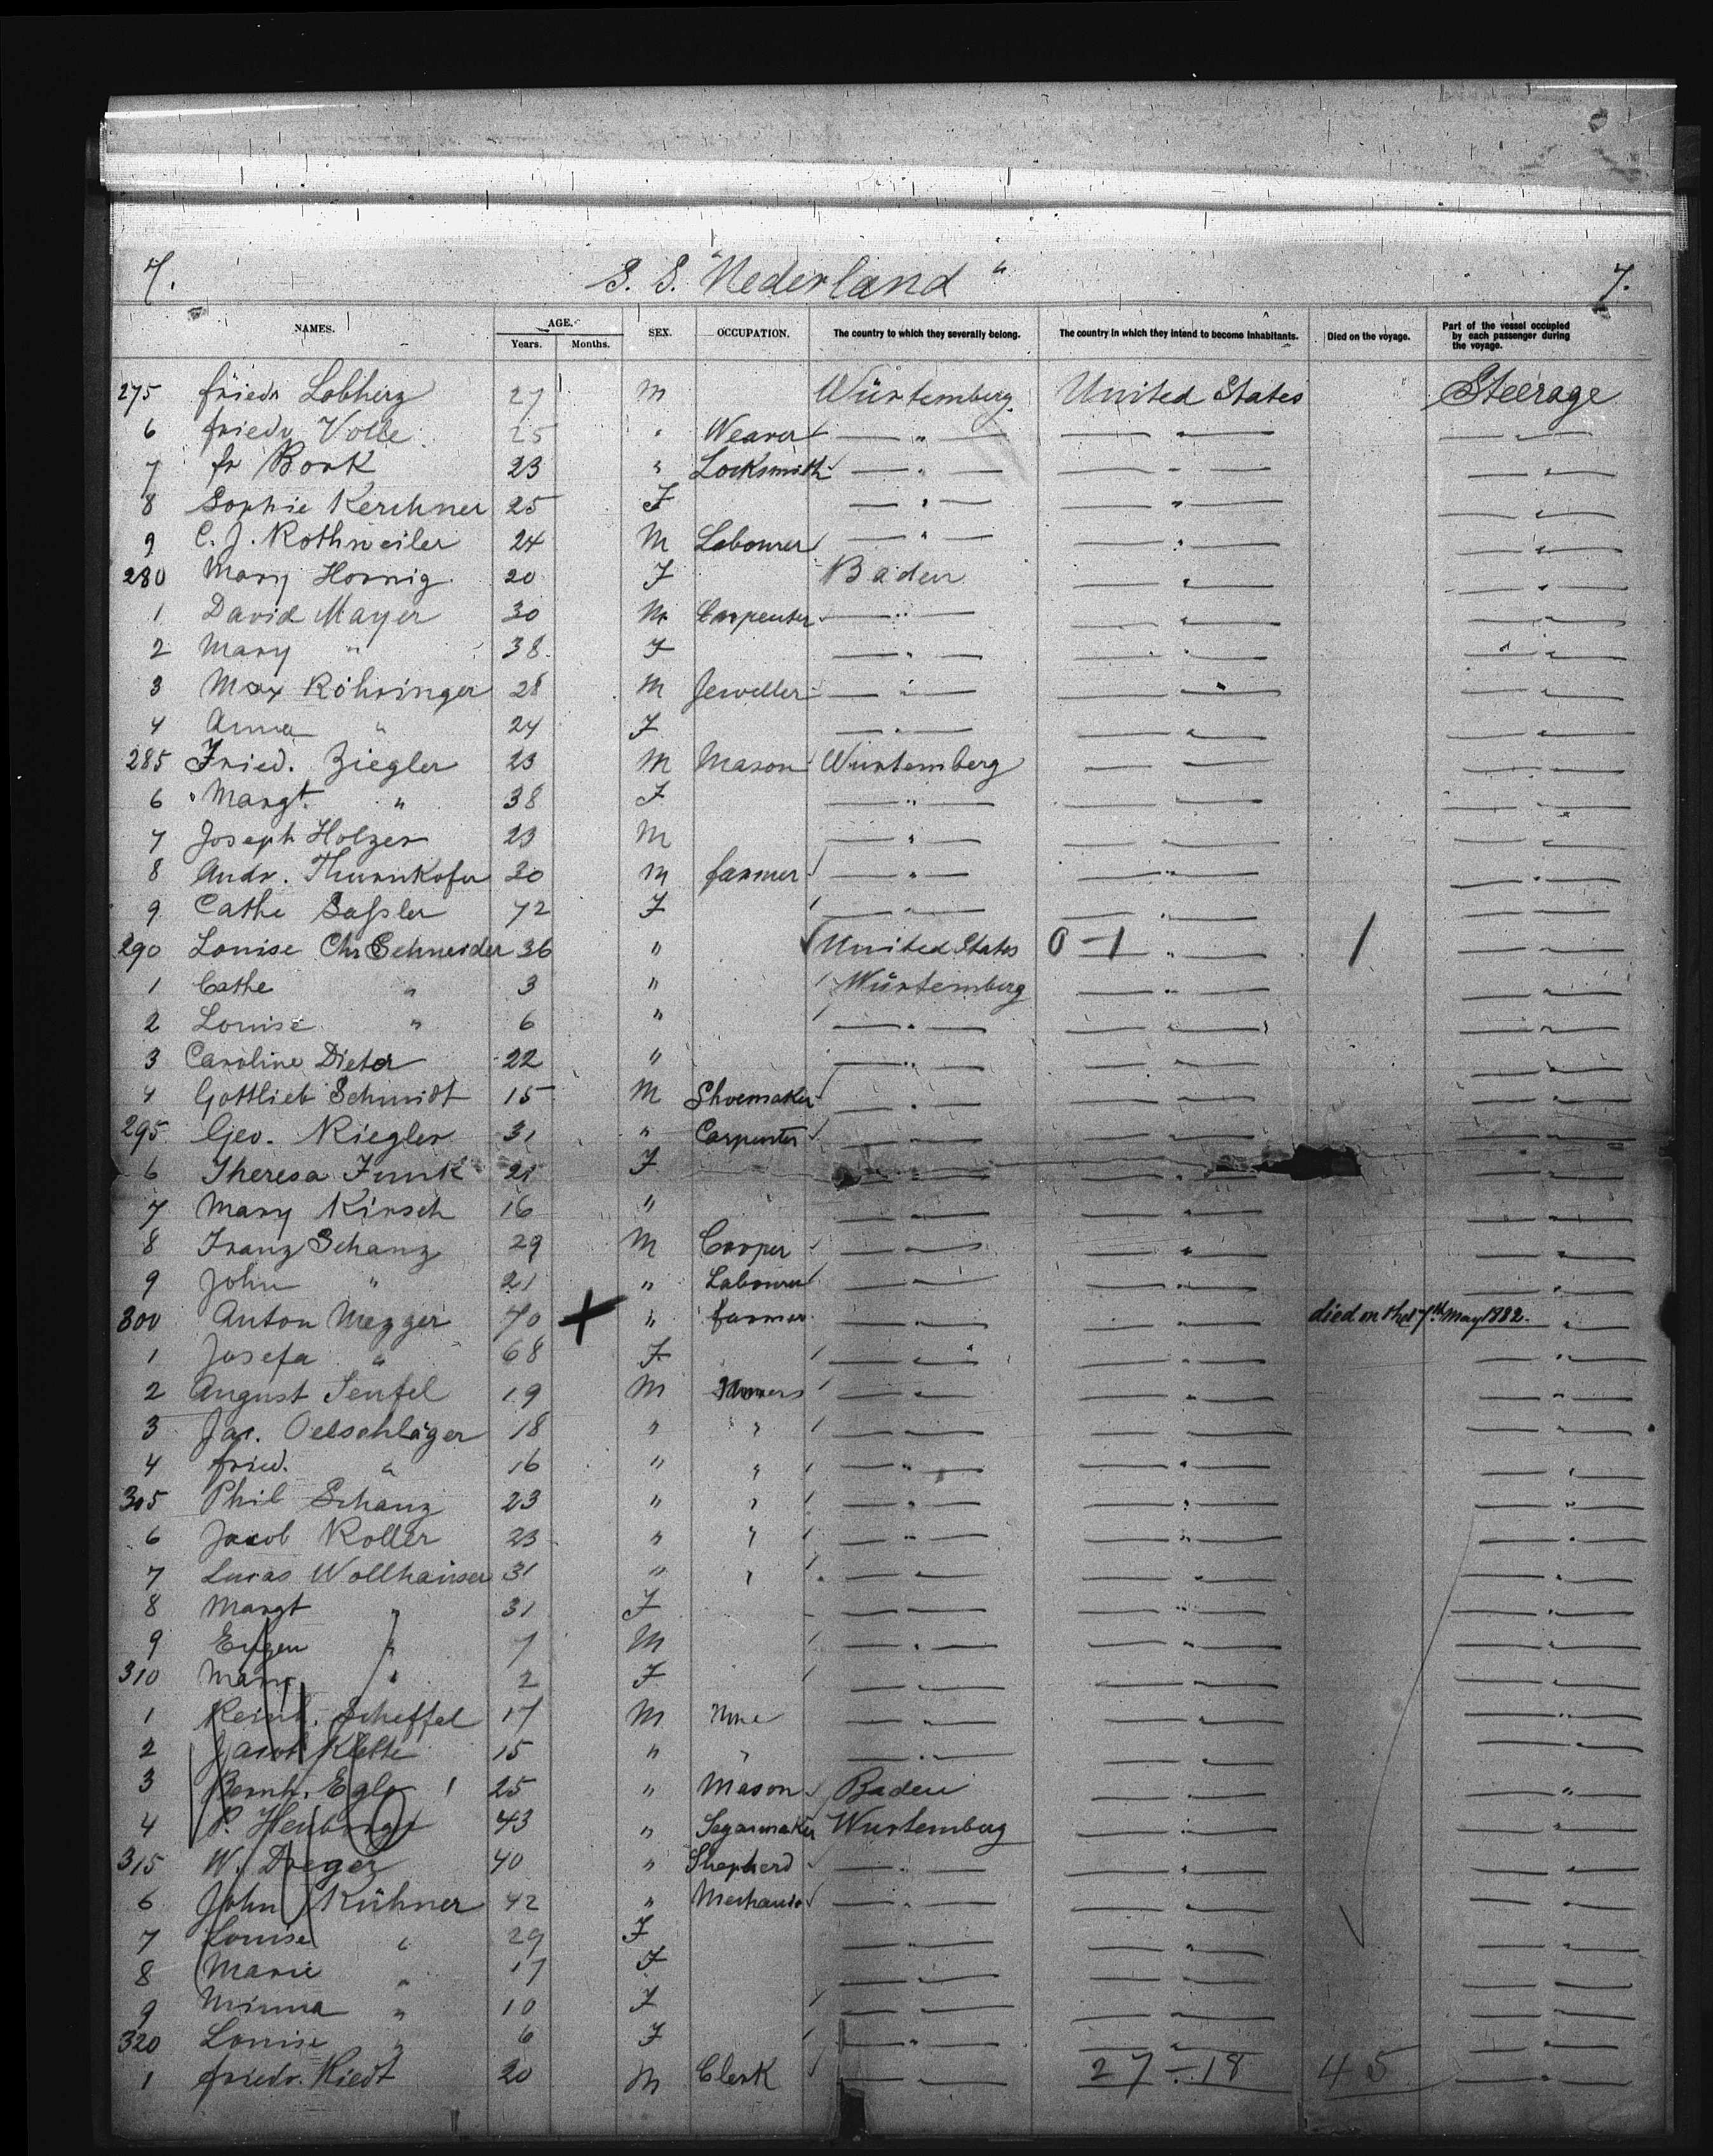 7. S. S. "Nederland" 7.
NAMES. AGE. SEX. OCCUPATION. The country to which they severally belong. The country in which they intend to become inhabitants. Died on the voyage. Part of the vessel occupied by each passenger during the voyage.
Years. Months.
275 friedr Lobherz 27 M Würtemberg United States Steerage
6 friedr Volle 25 " Weaver — " — — " — — " —
7 fr Bork 23 " Locksmith — " — — " — — " —
8 Sophie Kerchner 25 F — " — — " — — " —
9 C. J. Rothweiler 24 M Labourer — " — — " — — " —
280 Mary Hornig 20 F Baden — " — — " —
1 David Mayer 30 M Carpenter — " — — " — — " —
2 Mary " 38 F — " — — " — — " —
3 Max Röhringer 28 M Jeweller — " — — " — — " —
4 Anna " 24 F — " — — " — — " —
285 Fried. Ziegler 23 M Mason Wurtemberg — " — — " —
6 Margt. " 38 F — " — — " — — " —
7 Joseph Holzer 23 M — " — — " — — " —
8 Andr. Thurnkofer 20 M farmer — " — — " — — " —
9 Cathe Saßler 72 F — " — — " — — " —
290 Louise Chr Schneider 36 " United States 0 - 1 — " — 1 — " —
1 Cathe " 3 " Würtemberg — " — — " —
2 Louise " 6 " — " — — " — — " —
3 Caroline Dieter 22 " — " — — " — — " —
4 Gottlieb Schmidt 15 M Shoemaker — " — — " — — " —
295 Geo. Riegler 31 " Carpenter — " — — " — — " —
6 Theresa Funk 21 F — " — — " — — " —
7 Mary Kirsch 16 " — " — — " — — " —
8 Franz Schanz 29 M Cooper — " — — " — — " —
9 John " 21 " Labourer — " — — " — — " —
300 Anton Mezger 70 + " farmer — " — — " — died on the 17th May 1882. — " —
1 Josefa " 68 F — " — — " — — " —
2 August Teufel 19 M — " — — " — — " —
3 Jac. Oelschläger 18 " " — " — — " — — " —
4 fried. " 16 " " — " — — " — — " —
305 Phil Schanz 23 " " — " — — " — — " —
6 Jacob Koller 23 " " — " — — " — — " —
7 Lucas Wollhauser 31 " " — " — — " — — " —
8 Margt " 31 F — " — — " — — " —
9 Eugen " 7 M — " — — " — — " —
310 Mary " 2 F — " — — " — — " —
1 Reinh. Scheffel 17 M None — " — — " — — " —
2 Jacob Klett 15 " " — " — — " — — " —
3 Bernh. 25 " Mason Baden — " — — " —
4 43 " Segarmaker Wurtemberg — " — — " —
315 W. Dreger 40 " Shepherd — " — — " — — " —
6 John Kühner 42 " — " — — " — — " —
7 Louise " 29 F — " — — " — — " —
8 Marie " 17 F — " — — " — — " —
9 Minna " 10 F — " — — " — — " —
320 Louise " 6 F — " — — " — — " —
1 friedr. Riedt 20 M Clerk — " — 27 - 18 45 — " —